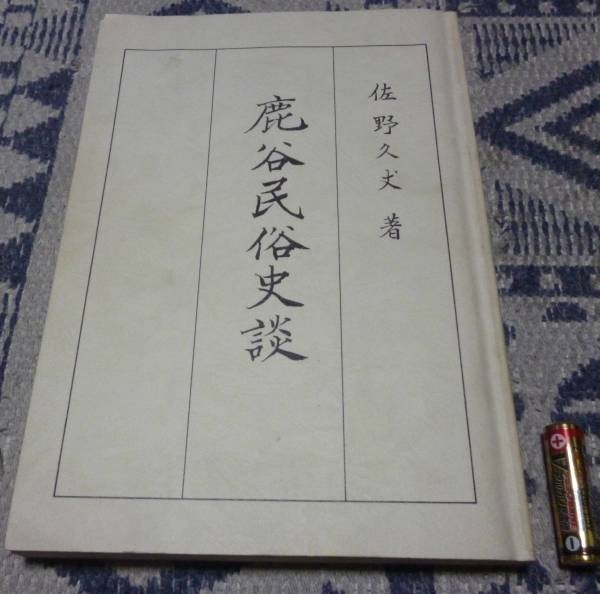 佐野久丈 著
鹿谷民俗史談